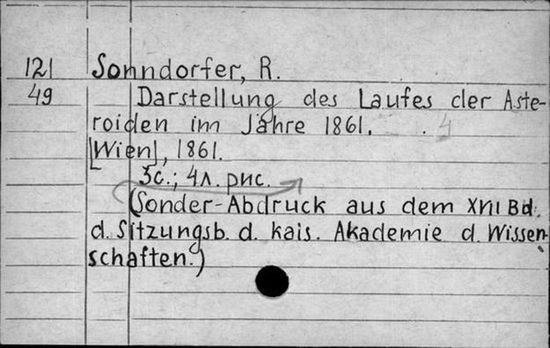 121 Sonndorfer, R.
49 Darstellung des Laufes der Aste-
roiden im Jahre 1861. . 4
[Wien], 1861.
3с.; 4л. рис.
(Sonder-Abdruck aus dem Bd.
d. Sitzungsb. d. kais. Akademie d. Wissen-
schaften.)